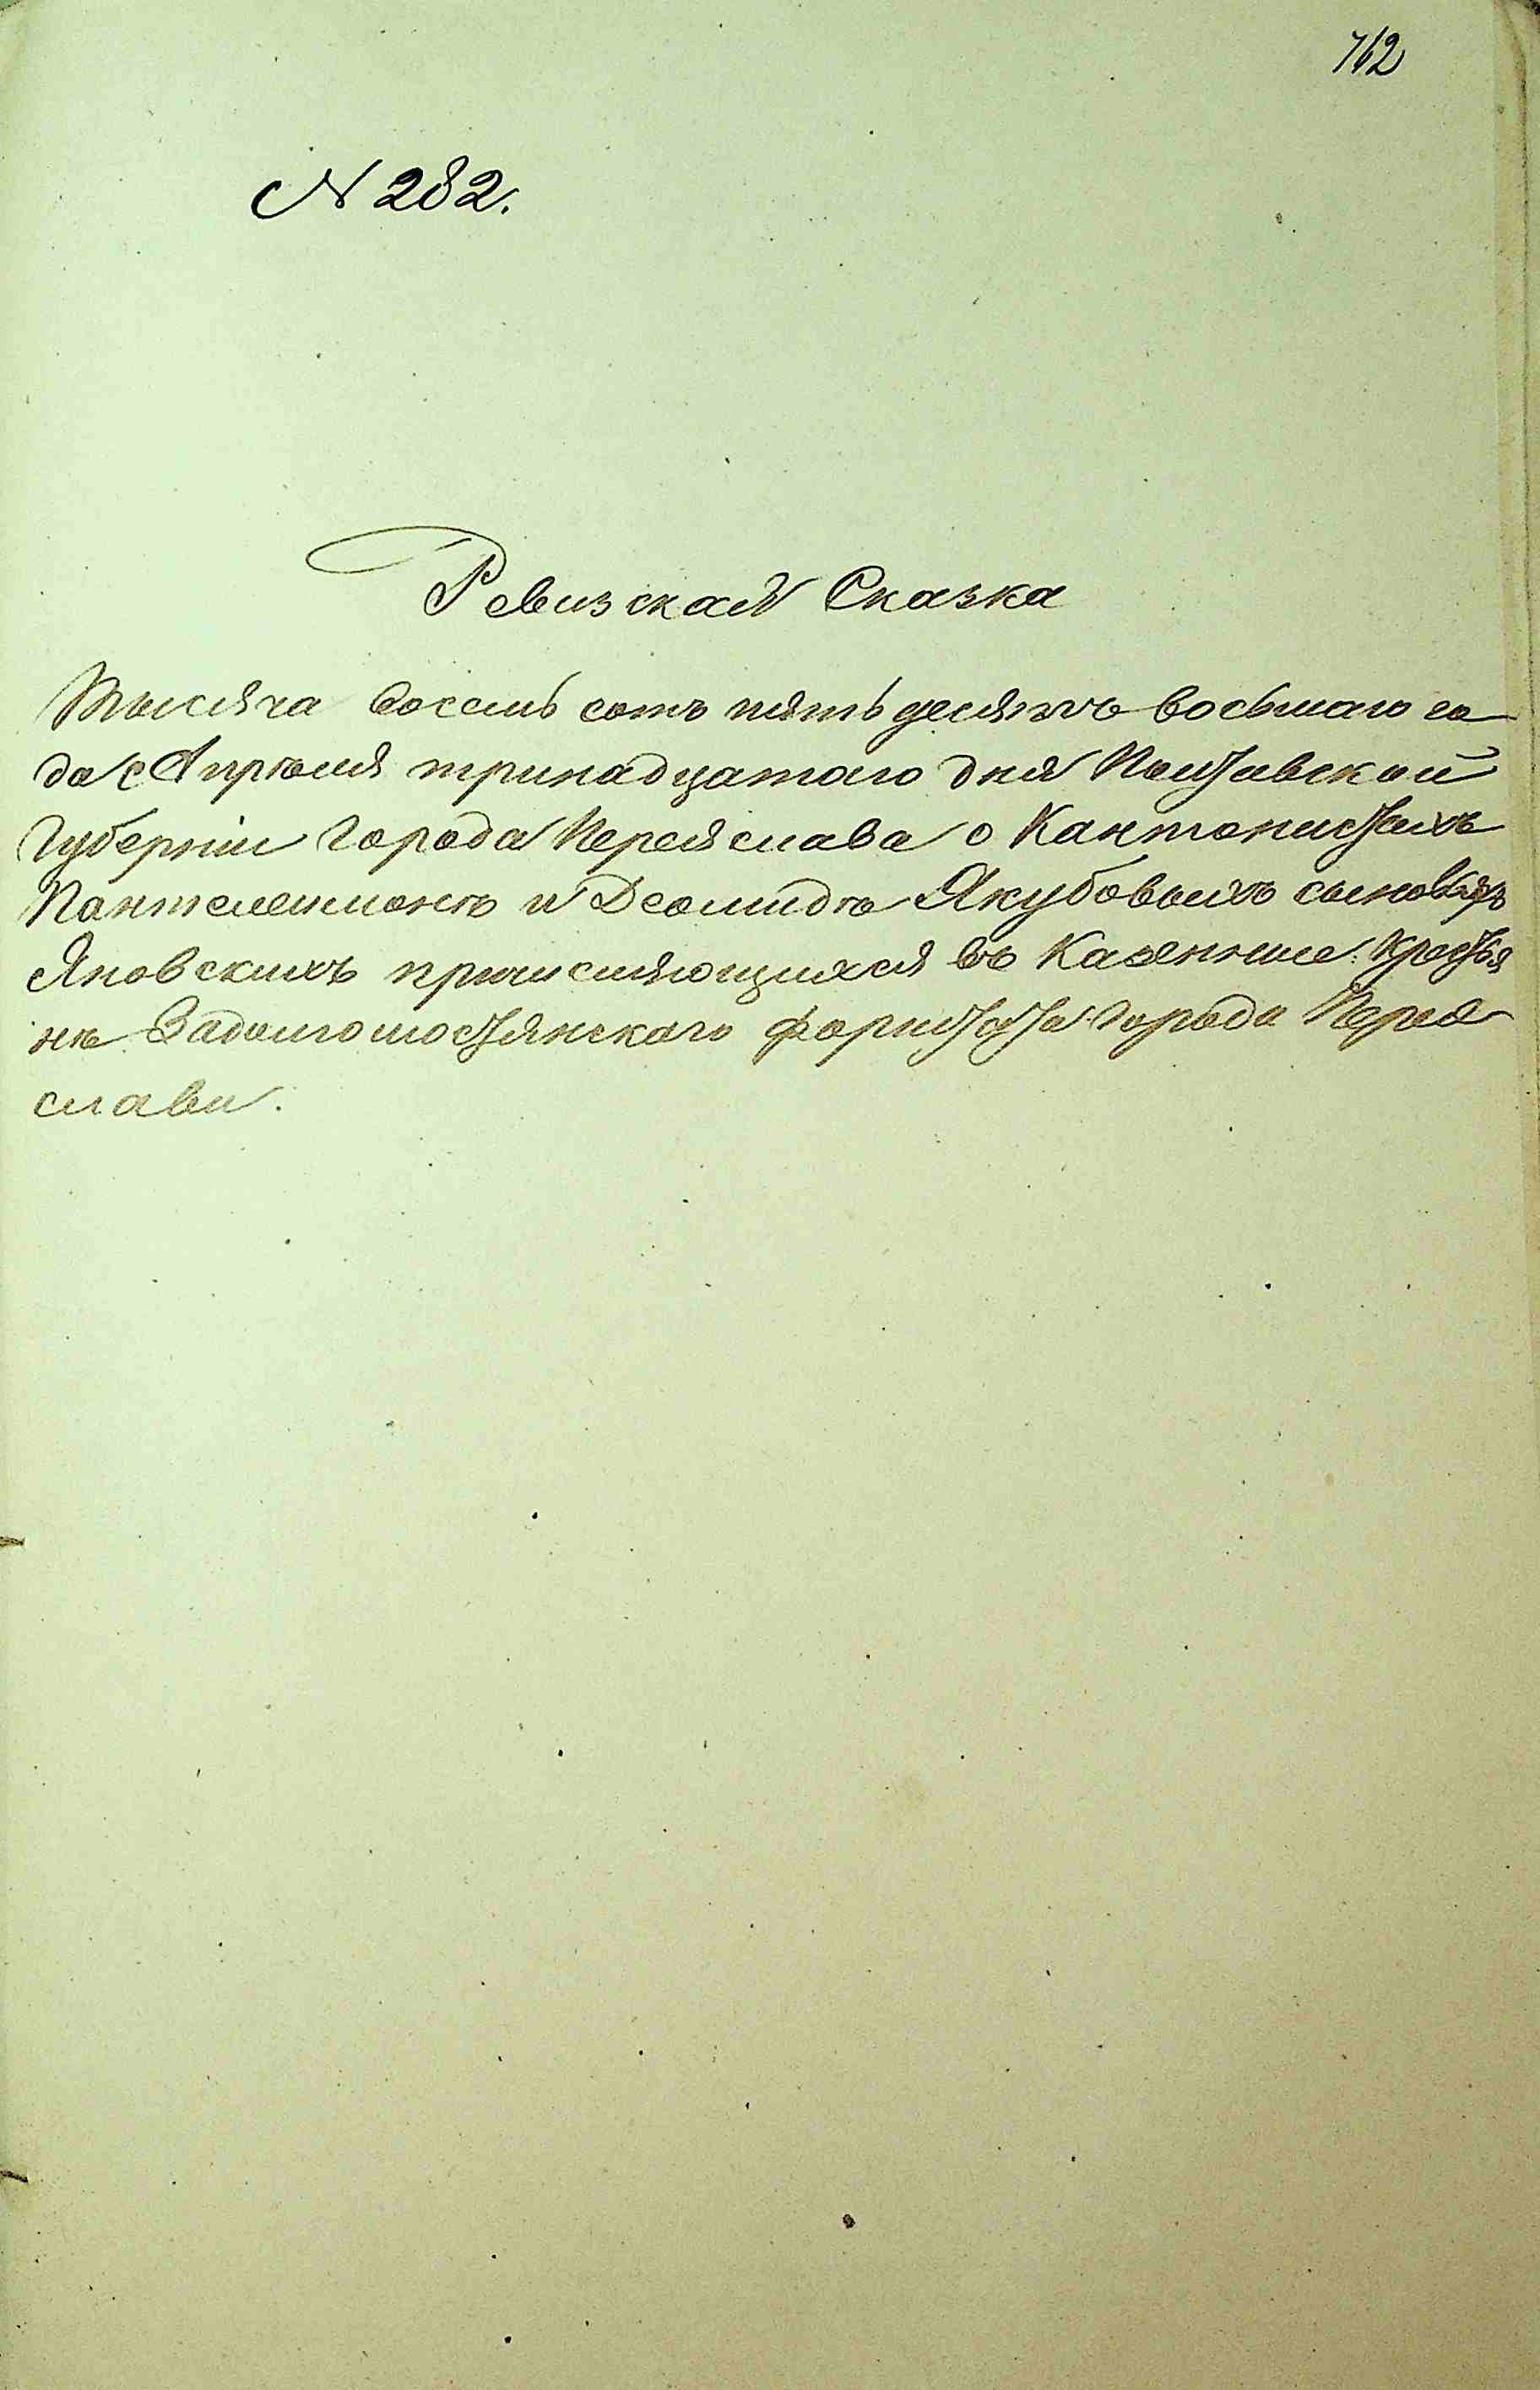 762
N 282.
Ревизская Сказка
Тысяча восемь сотъ пять десятъ восьмаго го
да Апрѣля тринадцатаго дня Полтавской
Губерніи города Переяслава о Кантонистахъ
Пантелеимонѣ и Деомидѣ Якубовыхъ сыновьяхъ
Яновскихъ причисляющихся въ Казенные Крестья
не Задолгомостянскаго форштата города Перея
слава.